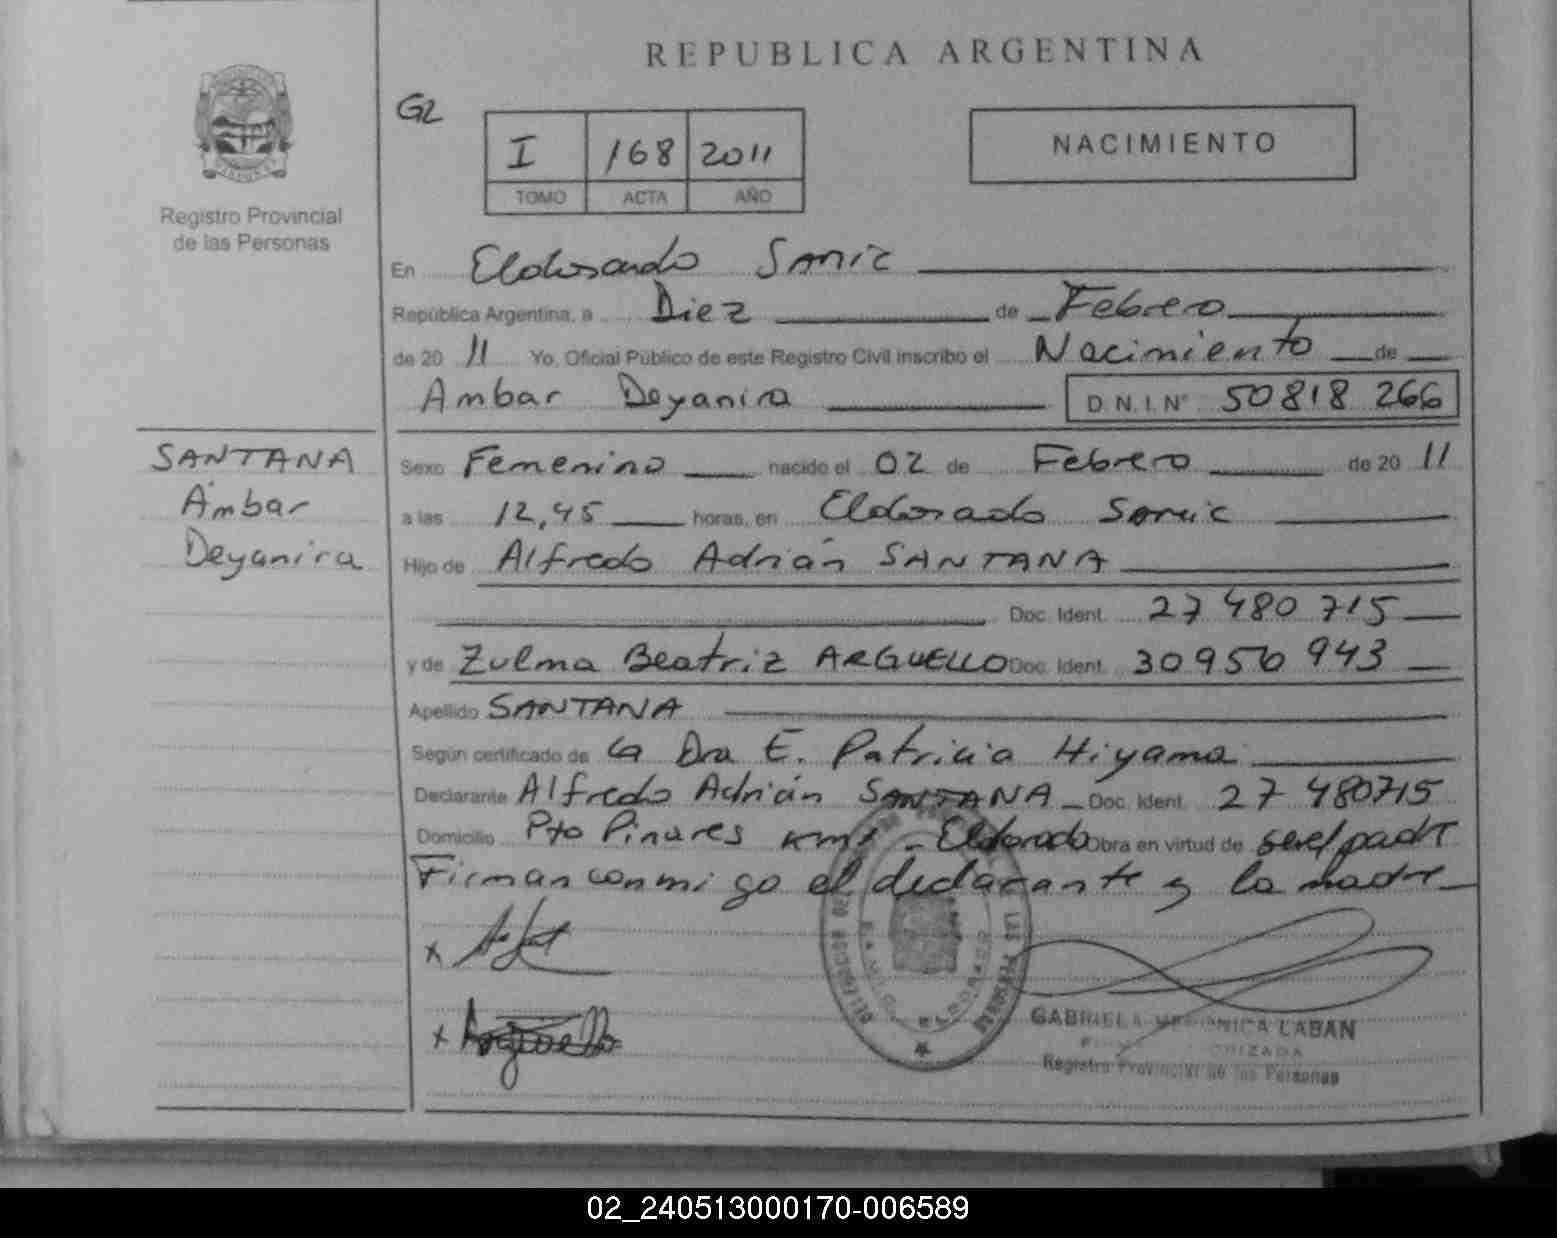 REPUBLICA ARGENTINA
G2
I 168 2011
TOMO ACTA AÑO
NACIMIENTO
Registro Provincial
de las Personas
En Eldorado
República Argentina, a Diez de Febrero
de 20 11 Yo, Oficial Público de este Registro Civil inscribo el Nacimiento de
Ambar Deyanira D.N.I.Nº 50818 266
SANTANA
Ámbar
Deyanira
Sexo Femenino nacido el 02 de Febrero de 20 11
a las 12,45 horas, en Eldorado
Hijo de Alfredo Adrián SANTANA
Doc. Ident. 27 480 715
y de Zulma Beatriz ARGUELLO Doc. Ident. 30956 943
Apellido SANTANA
Según certificado de la Dra E. Patricia Hiyama
Declarante Alfredo Adrián SANTANA Doc. Ident. 27 480715
Domicilio Pto Pinares km 1 - Eldorado Obra en virtud de ser el padre
Firman conmigo el declarante y la madre
x
x Arguello
GABRIELA VERONICA LABAN
FIRMA AUTORIZADA
Registro Provincial de las Personas
02_240513000170-006589